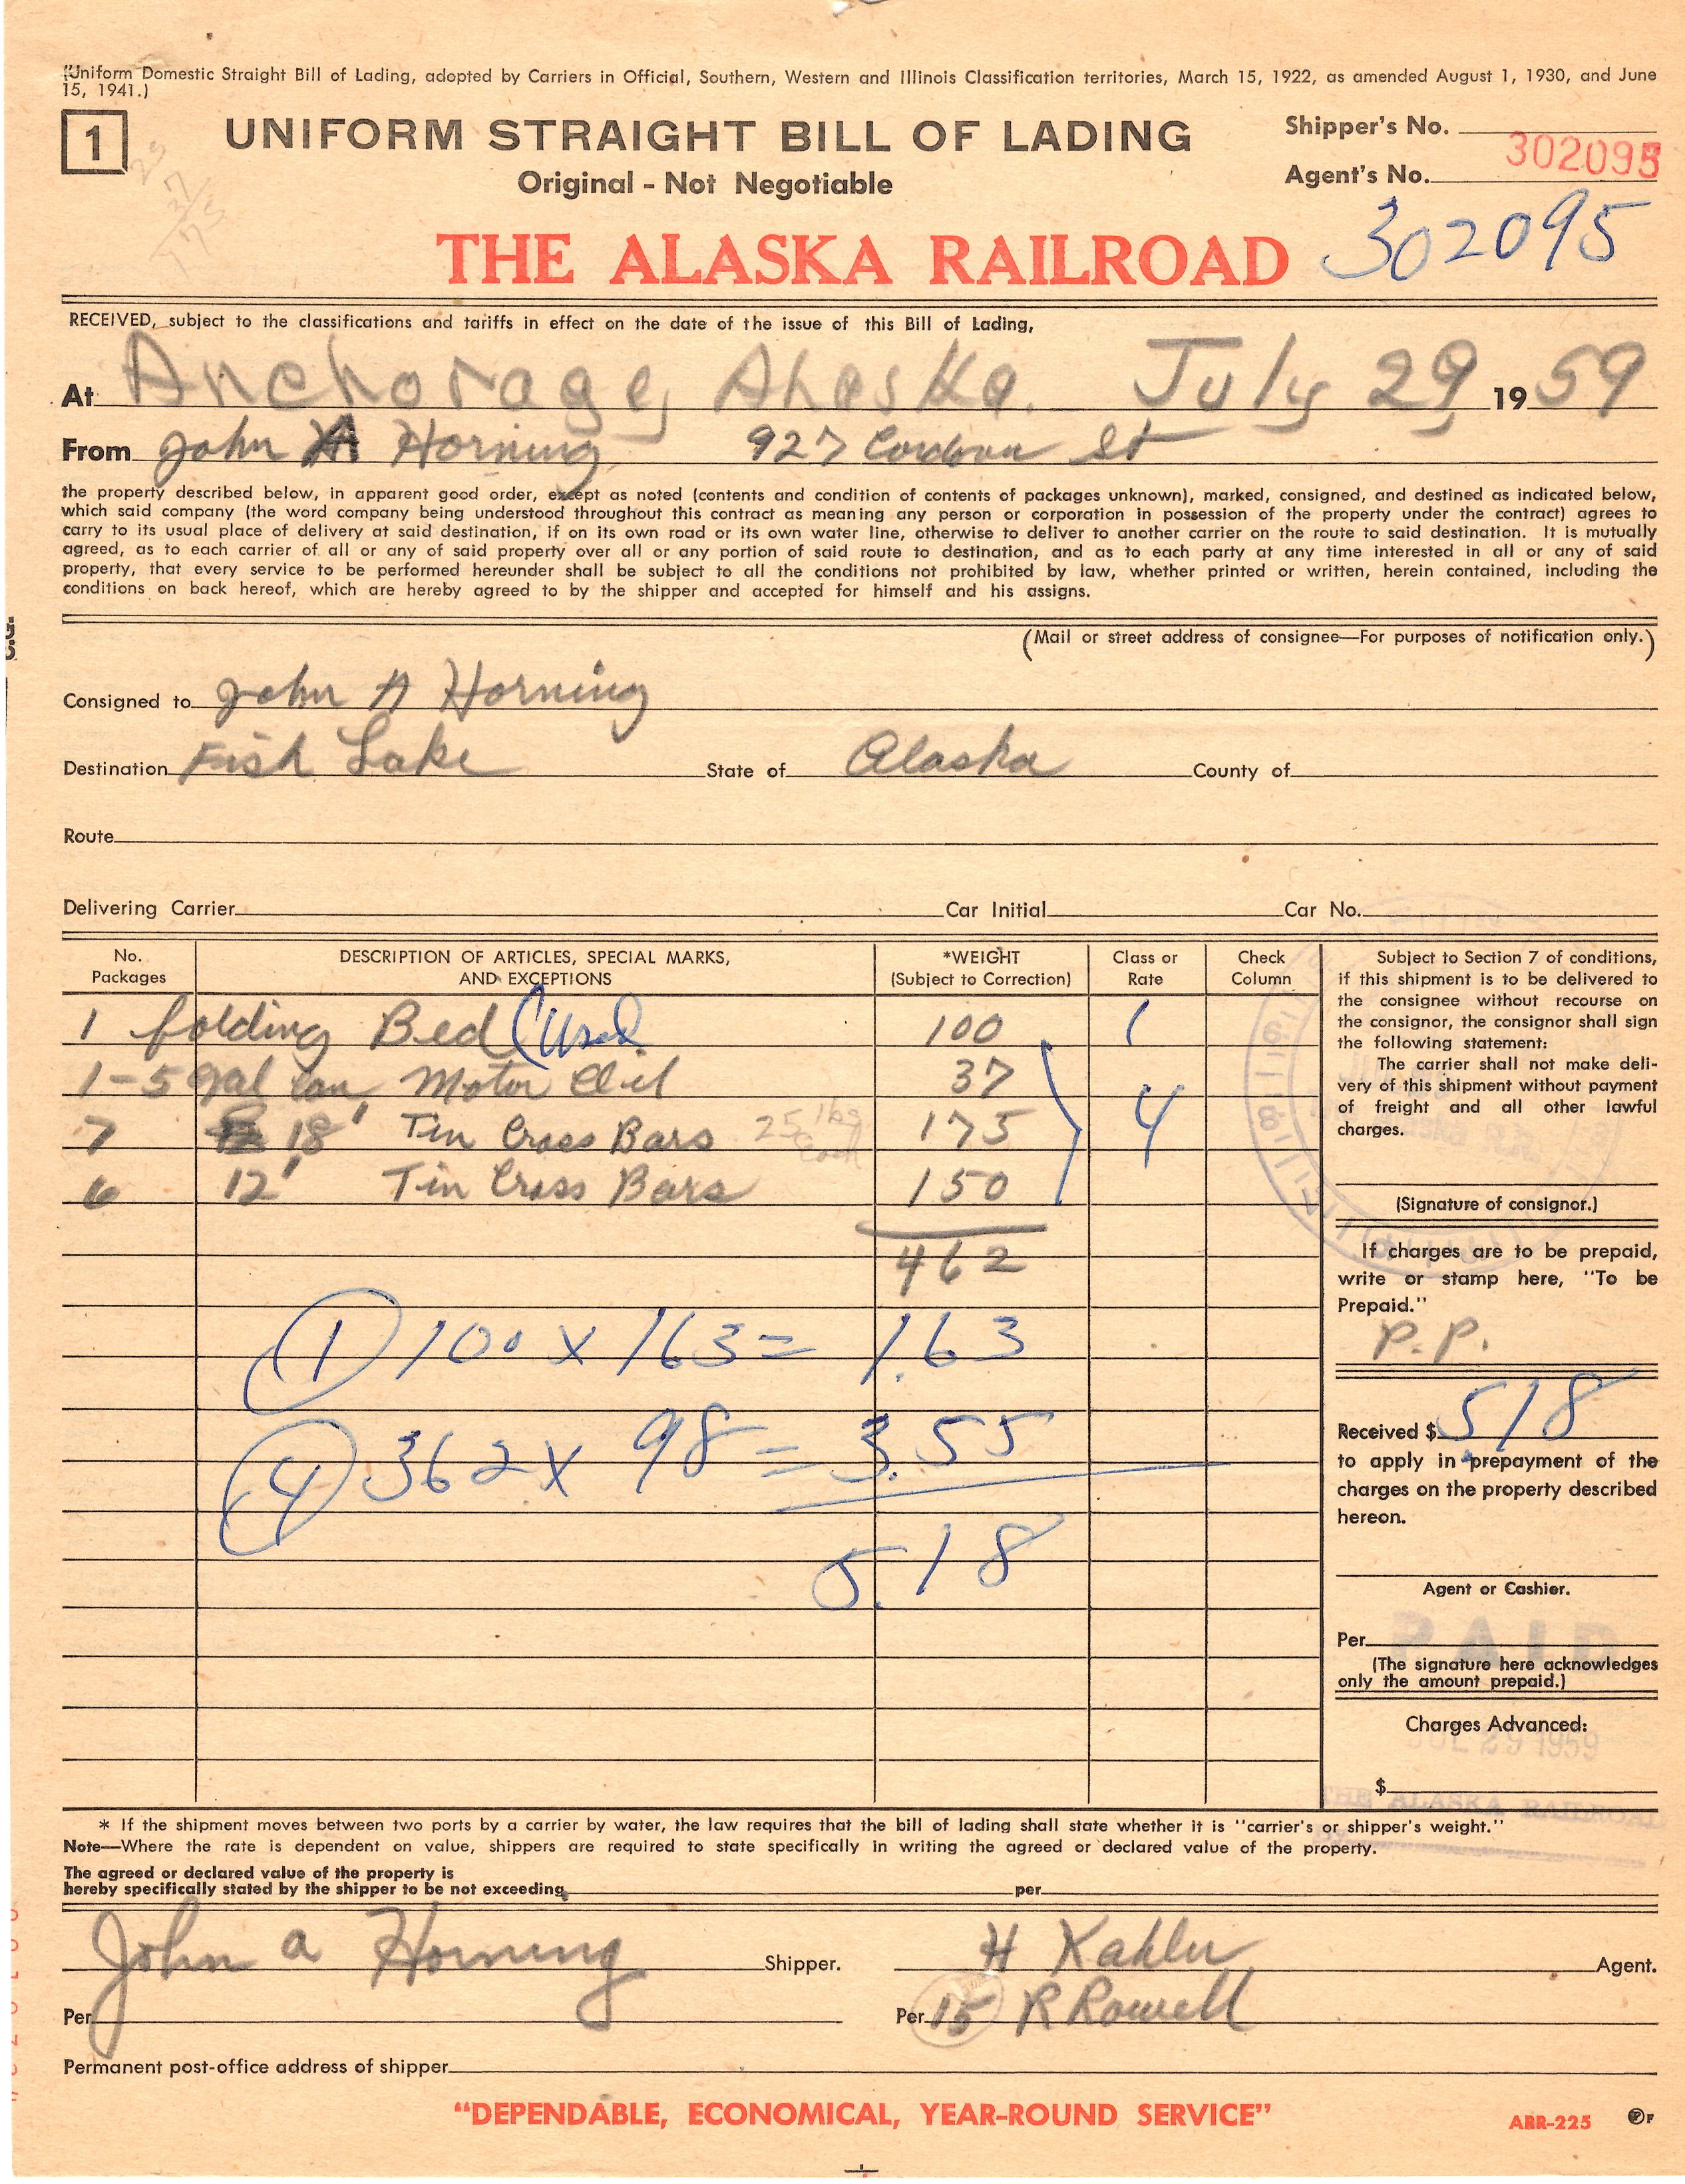 (Uniform Domestic Straight Bill of Lading, adopted by Carriers in Official, Southern, Western and Illinois Classification territories, March 15, 1922, as amended August 1, 1930, and June
15, 1941.)
1 UNIFORM STRAIGHT BILL OF LADING
Shipper's No.
Original - Not Negotiable
Agent's No. 302095
THE ALASKA RAILROAD 302095
RECEIVED, subject to the classifications and tariffs in effect on the date of the issue of this Bill of Lading,
At Anchorage, Alaska. July 29 19 59
From John A Horning 927 Cordova St
the property described below, in apparent good order, except as noted (contents and condition of contents of packages unknown), marked, consigned, and destined as indicated below,
which said company (the word company being understood throughout this contract as meaning any person or corporation in possession of the property under the contract) agrees to
carry to its usual place of delivery at said destination, if on its own road or its own water line, otherwise to deliver to another carrier on the route to said destination. It is mutually
agreed, as to each carrier of all or any of said property over all or any portion of said route to destination, and as to each party at any time interested in all or any of said
property, that every service to be performed hereunder shall be subject to all the conditions not prohibited by law, whether printed or written, herein contained, including the
conditions on back hereof, which are hereby agreed to by the shipper and accepted for himself and his assigns.
(Mail or street address of consignee—For purposes of notification only.)
Consigned to John A Horning
Destination Fish Lake State of Alaska County of
Route
Delivering Carrier Car Initial Car No.
No. Packages
DESCRIPTION OF ARTICLES, SPECIAL MARKS, AND EXCEPTIONS
*WEIGHT (Subject to Correction)
Class or Rate
Check Column
1 folding Bed (Used 100 1
1-5 gal can Motor Oil 37
7 18' Tin Cross Bars 25 lbs each 175 4
6 12' Tin Cross Bars 150
462
1 100 x 163 = 1.63
4 362 x 98 = 3.55
5.18
Subject to Section 7 of conditions,
if this shipment is to be delivered to
the consignee without recourse on
the consignor, the consignor shall sign
the following statement:
The carrier shall not make deli-
very of this shipment without payment
of freight and all other lawful
charges.
(Signature of consignor.)
If charges are to be prepaid,
write or stamp here, "To be
Prepaid."
P.P.
Received $ 518
to apply in prepayment of the
charges on the property described
hereon.
Agent or Cashier.
PAID
Per
(The signature here acknowledges
only the amount prepaid.)
Charges Advanced:
JUL 29 1959
$
THE ALASKA RAILROAD
* If the shipment moves between two ports by a carrier by water, the law requires that the bill of lading shall state whether it is "carrier's or shipper's weight."
Note—Where the rate is dependent on value, shippers are required to state specifically in writing the agreed or declared value of the property.
The agreed or declared value of the property is
hereby specifically stated by the shipper to be not exceeding per
John a Horning Shipper. H Kahler Agent.
Per Per 15 R Rowell
Permanent post-office address of shipper
"DEPENDABLE, ECONOMICAL, YEAR-ROUND SERVICE"
ARR-225